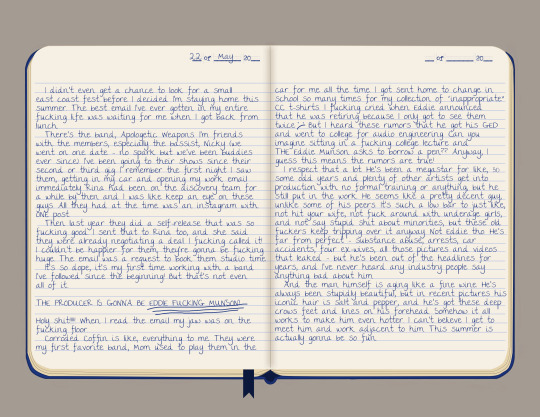 22 of May 20
I didn't even get a chance to look for a small
east coast fest before I decided I'm staying home this
summer. The best email I've ever gotten in my entire
fucking life was waiting for me when I got back from
lunch.
There's the band, Apologetic Weapons. I'm friends
with the members, especially the bassist, Nicky (we
went on one date - no spark but we've been buddies
ever since). I've been going to their shows since their
second or third gig. I remember the first night I saw
them, getting in my car and opening my work email
immediately. Rina had been on the discovery team for
a while by then and I was like keep an eye on these
guys. All they had at the time was an instagram with
ONE post.
Then last year they did a self-release that was so
fucking good I sent that to Rina too, and she said
they were already negotiating a deal. I fucking called it.
I couldn't be happier for them, they're gonna be fucking
huge. The email was a request to book them studio time.
It's so dope, it's my first time working with a band
I've followed since the beginning! But that's not even
all of it.
THE PRODUCER IS GONNA BE EDDIE FUCKING MUNSON!
Holy shit!!! When I read the email my jaw was on the
fucking floor.
Corroded Coffin is, like, everything to me. They were
my first favorite band, Mom used to play them in the
of 20
car for me all the time. I got sent home to change in
school so many times for my collection of "inappropriate"
CC t-shirts. I fucking cried when Eddie announced
that he was retiring because I only got to see them
twice. But I heard these rumors that he got his GED
and went to college for audio engineering. Can you
imagine sitting in a fucking college lecture and
THE Eddie Munson asks to borrow a pen?? Anyway, I
guess this means the rumors are true!
I respect that a lot. He's been a megastar for, like,
some odd years and plenty of other artists get into
production with no formal training or anything, but he
still put in the work. He seems like a pretty decent guy,
unlike some of his peers. It's such a low bar to just, like,
not hit your wife, not fuck around with underage girls,
and not say stupid shit about minorities, but these old
fuckers keep tripping over it anyway. Not Eddie tho. He's
far from perfect - substance abuse, arrests, car
accidents, four ex-wives, all those pictures and videos
that leaked - but he's been out of the headlines for
years, and I've never heard any industry people say
anything bad about him.
And the man himself is aging like a fine wine. He's
always been stupidly beautiful, but in recent pictures his
iconic hair is salt and pepper, and he's got these deep
crows feet and lines on his forehead. Somehow it all
works to make him even hotter. I can't believe I get to
meet him and work adjacent to him. This summer is
actually gonna be so fun.